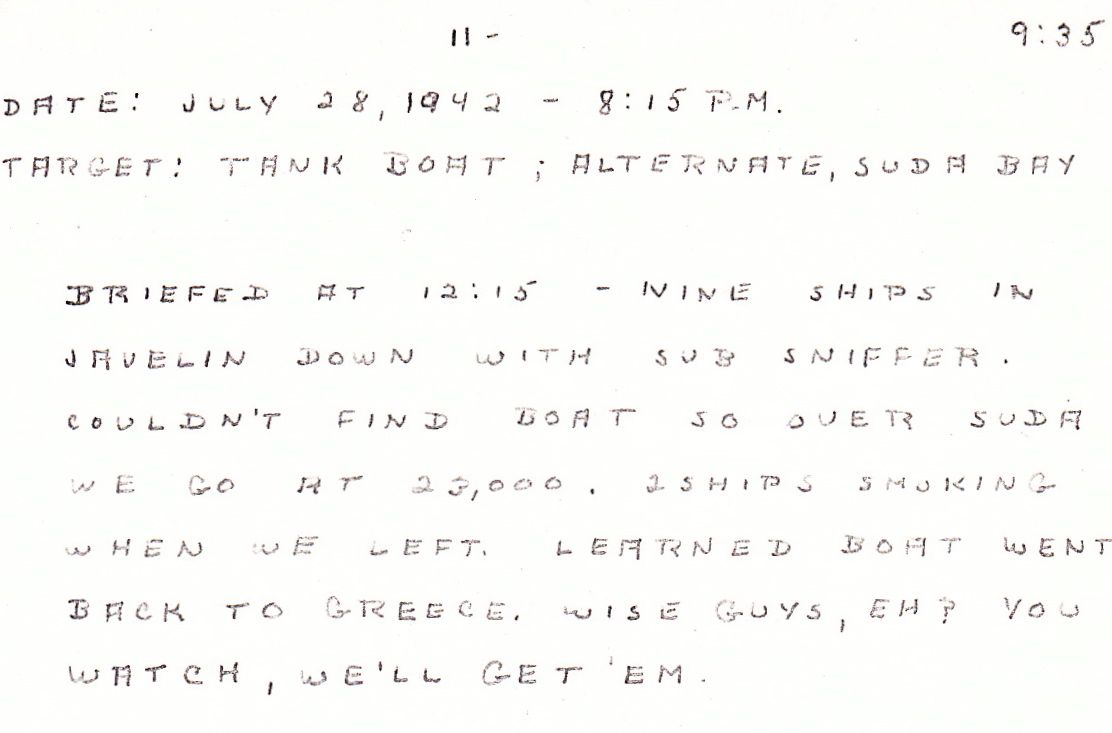 11- 9:35
DATE: JULY 28, 1942 - 8:15 P.M.
TARGET: TANK BOAT ; ALTERNATE, SUDA BAY
BRIEFED AT 12:15 - NINE SHIPS IN
JAVELIN DOWN WITH SUB SNIFFER.
COULDN'T FIND BOAT SO OVER SUDA
WE GO AT 23,000. 2 SHIPS SMOKING
WHEN WE LEFT. LEARNED BOAT WENT
BACK TO GREECE. WISE GUYS, EH? YOU
WATCH, WE'LL GET 'EM.